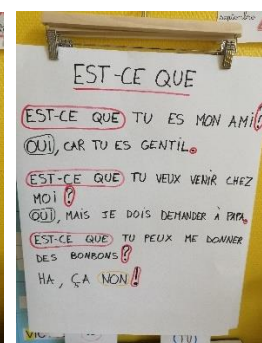 septembre
EST-CE QUE
EST-CE QUE TU ES MON AMI?
OUI, CAR TU ES GENTIL.
EST-CE QUE TU VEUX VENIR CHEZ
MOI ?
OUI, MAIS JE DOIS DEMANDER À PAPA.
EST-CE QUE TU PEUX ME DONNER
DES BONBONS ?
HA, ÇA NON !